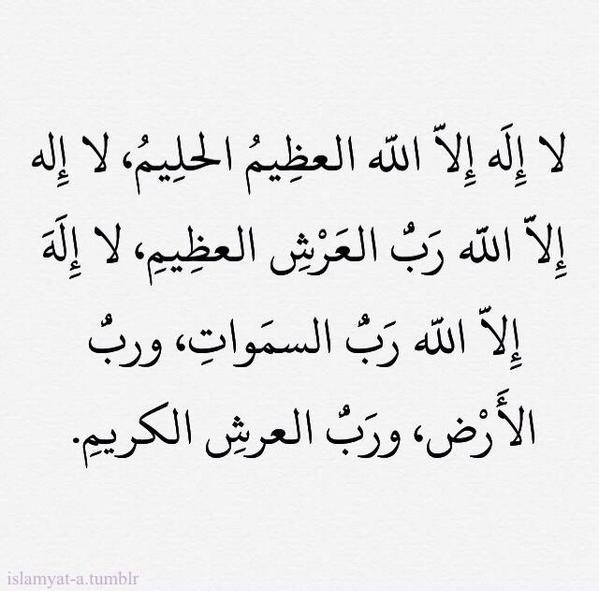 لا إِلَه إِلاّ اللّه العظِيمُ الحلِيمُ، لا إِله
إِلاّ اللّه رَبُّ العَرْشِ العظِيمِ، لا إِلَهَ
إِلاّ اللّه رَبُّ السمَواتِ، وربُّ
الأَرْض، ورَبُّ العرشِ الكريمِ.
islamyat-a.tumblr